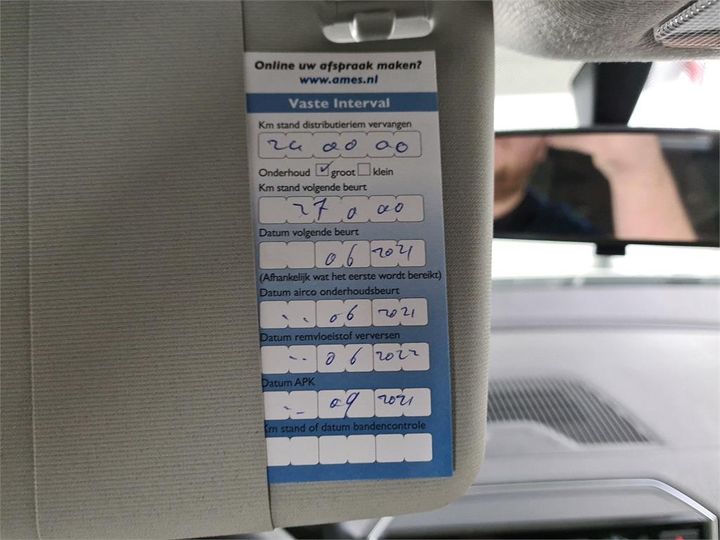 Online uw afspraak maken?
www.ames.nl
Vaste Interval
Km stand distributieriem vervangen
24 00 00
Onderhoud ✓ groot klein
Km stand volgende beurt
27 0 00
Datum volgende beurt
06 2021
(Afhankelijk wat het eerste wordt bereikt)
Datum airco onderhoudsbeurt
-- 06 2021
Datum remvloeistof verversen
-- 06 2022
Datum APK
-- 09 2021
Km stand of datum bandencontrole